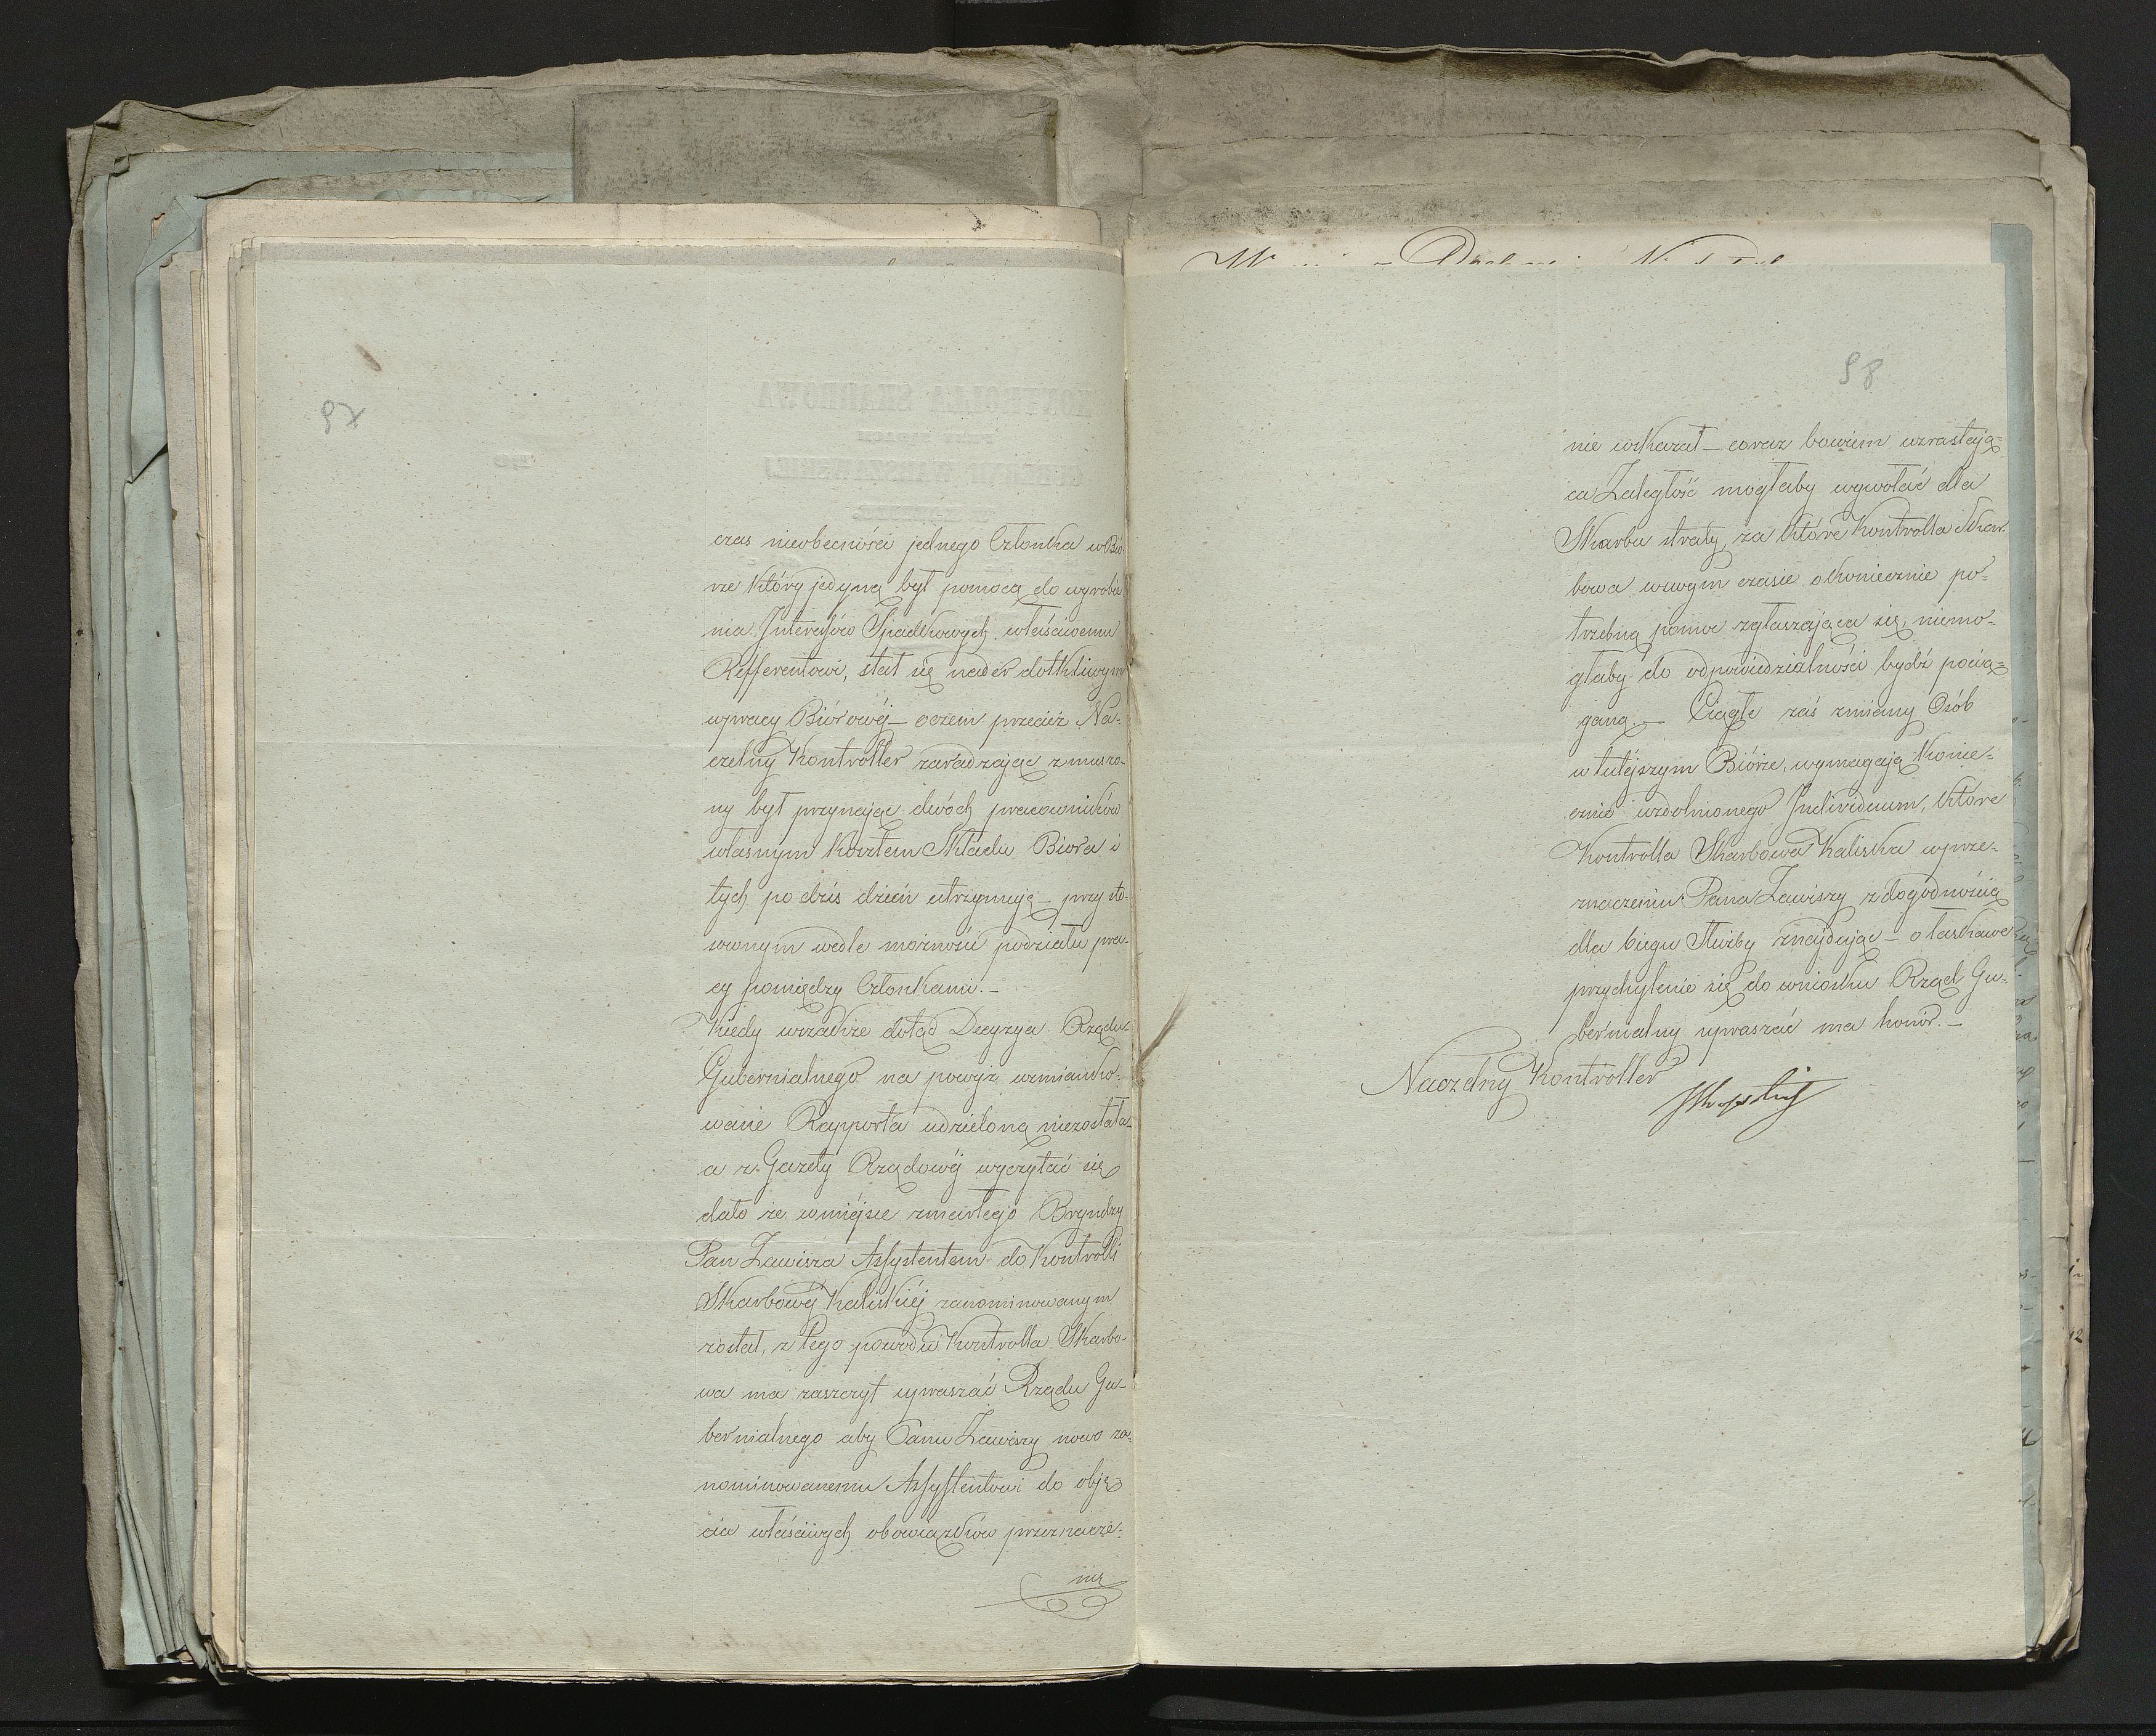 97
czas nieobecności jednego Członka w Bió-
rze który jedyną był pomocą do wyrobie
nia Interessów Spadkowych właściwemu
Refferentowi, stał się nader dotkliwym
w pracy Biórowéj – oczem przecież Na-
czelny Kontroller zaradzając zmuszo-
ny był przynając dwóch pracowników
własnym kosztem Składu Bióra i
tych po dziś dzień utrzymuje – przy sto-
sownym wedle możności podziału pra-
cy pomiędzy Członkami. –
Kiedy wszakże dotąd Decyzya Rządu
Gubernialnego na powyż wzmianko-
wane Rapporta udzieloną niezostała –
a z Gazety Rządowéj wyczytać się
dało że w miéjsce zmarłego Bryndzy
Pan Zawisza Assystentem do Kontrolli
Skarbowéj Kaliskiéj zanominowanym
został, z tego powodu Kontrolla Skarbo-
wa ma zaszczyt upraszać Rządu Gu-
bernialnego aby Panu Zawiszy nowo za-
nominowanemu Assystentowi do obję
cia właściwych obowiązków przeznacze-
nie
98
nie wskazał – coraz bowiem wzrastają-
ca Zaległość mogłaby wywołać dla
Skarbu straty, za które Kontrolla Skar-
bowa w swym czasie o koniecznie po-
trzebną pomoc zgłaszająca się, niemo-
głaby do odpowiedzialności bydź pocią-
ganą. – Ciągłe zaś zmiany Osób
w tutéjszym Biórze, wymagają konie-
cznie uzdolnionego Individuum, które
Kontrolla Skarbowa Kaliska w prze-
znaczeniu Pana Zawiszy z dogodnością
dla biegu Służby znajdując – o łaskawe
przychylenie się do wniosku Rząd Gu-
bernialny upraszać ma honor. –
Naczelny Kontroller